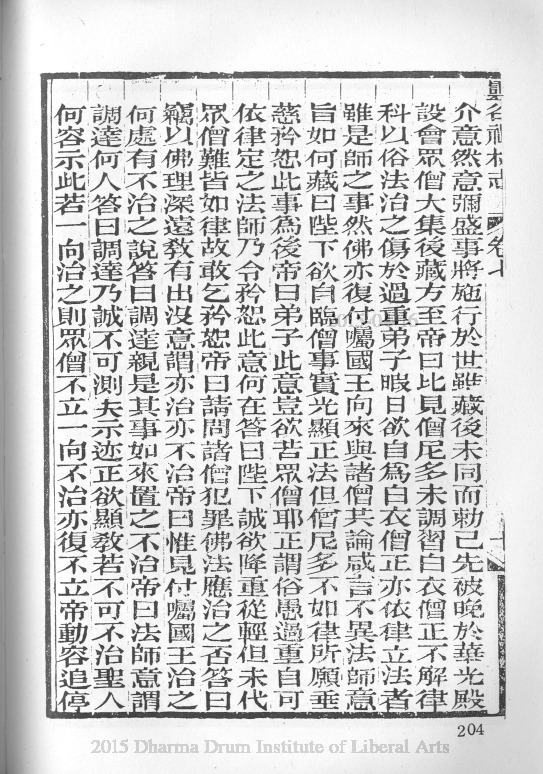 靈谷禪林志 卷七
介意然意彌盛事將施行於世雖藏後未同而勅已先被晚於華光殿
設會眾僧大集後藏方至帝曰比見僧尼多未調習白衣僧正不解律
科以俗法治之傷於過重弟子暇日欲自爲白衣僧正亦依律立法者
雖是師之事然佛亦復付囑國王向來與諸僧共論咸言不異法師意
旨如何藏曰陛下欲自臨僧事實光顯正法但僧尼多不如律所願垂
慈矜恕此事爲後帝曰弟子此意豈欲苦眾僧耶正謂俗愚過重自可
依律定之法師乃令矜恕此意何在答曰陛下誠欲降重從輕但末代
眾僧難皆如律故敢乞矜恕帝曰請問諸僧犯罪佛法應治之否答曰
竊以佛理深遠教有出沒意謂亦治亦不治帝曰惟見付囑國王治之
何處有不治之說答曰調達親是其事如來置之不治帝曰法師意謂
調達何人答曰調達乃誠不可測夫示迹正欲顯教若不可不治聖人
何容示此若一向治之則眾僧不立一向不治亦復不立帝動容追停
204
2015 Dharma Drum Institute of Liberal Arts